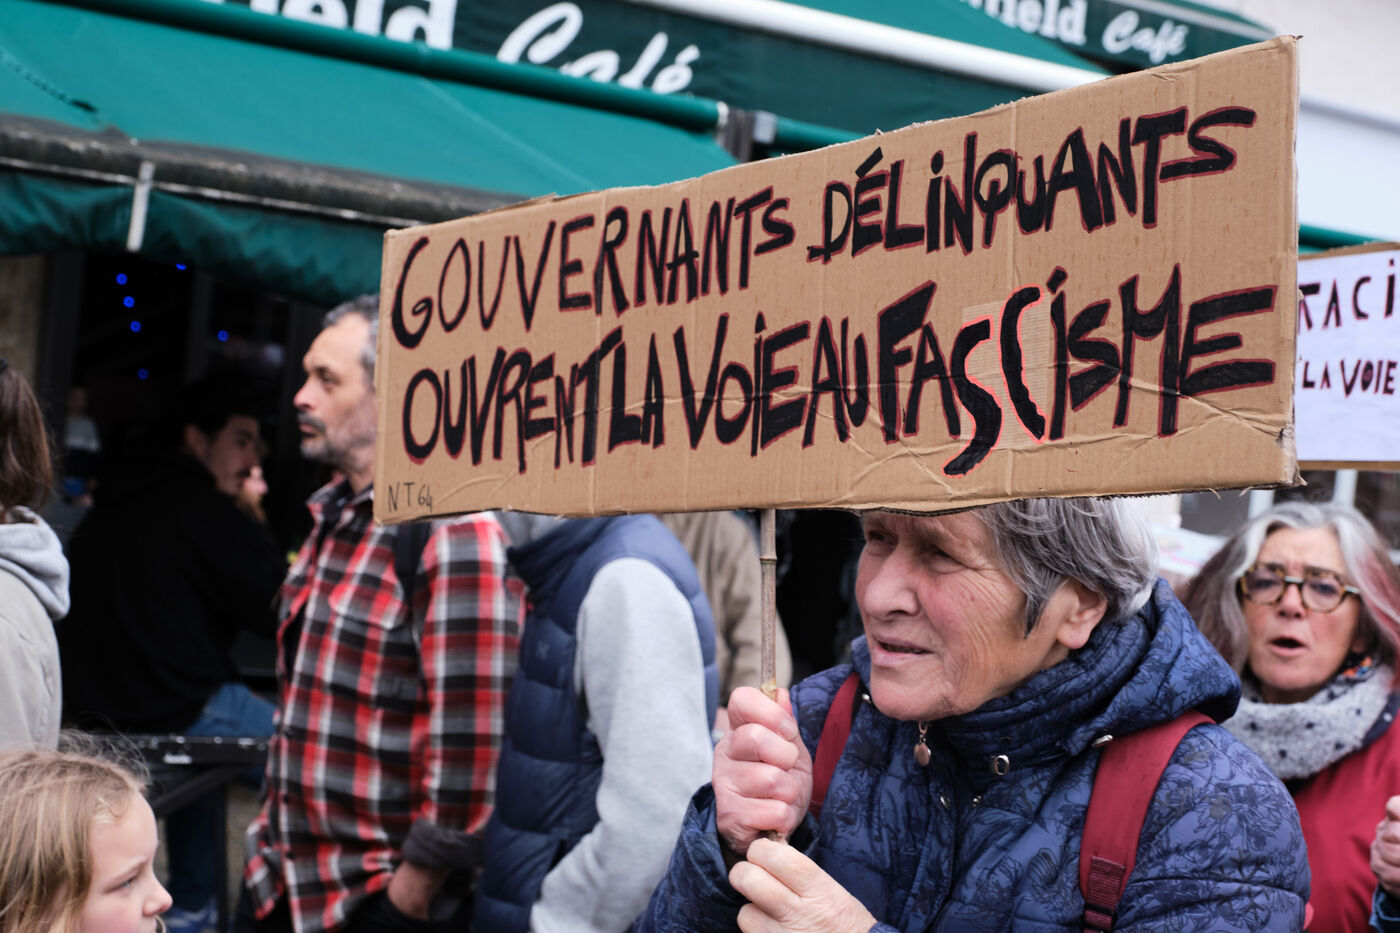 Café
Café
GOUVERNANTS DÉLINQUANTS
OUVRENT LA VOIE AU FASCISME
NT64
LA VOIE